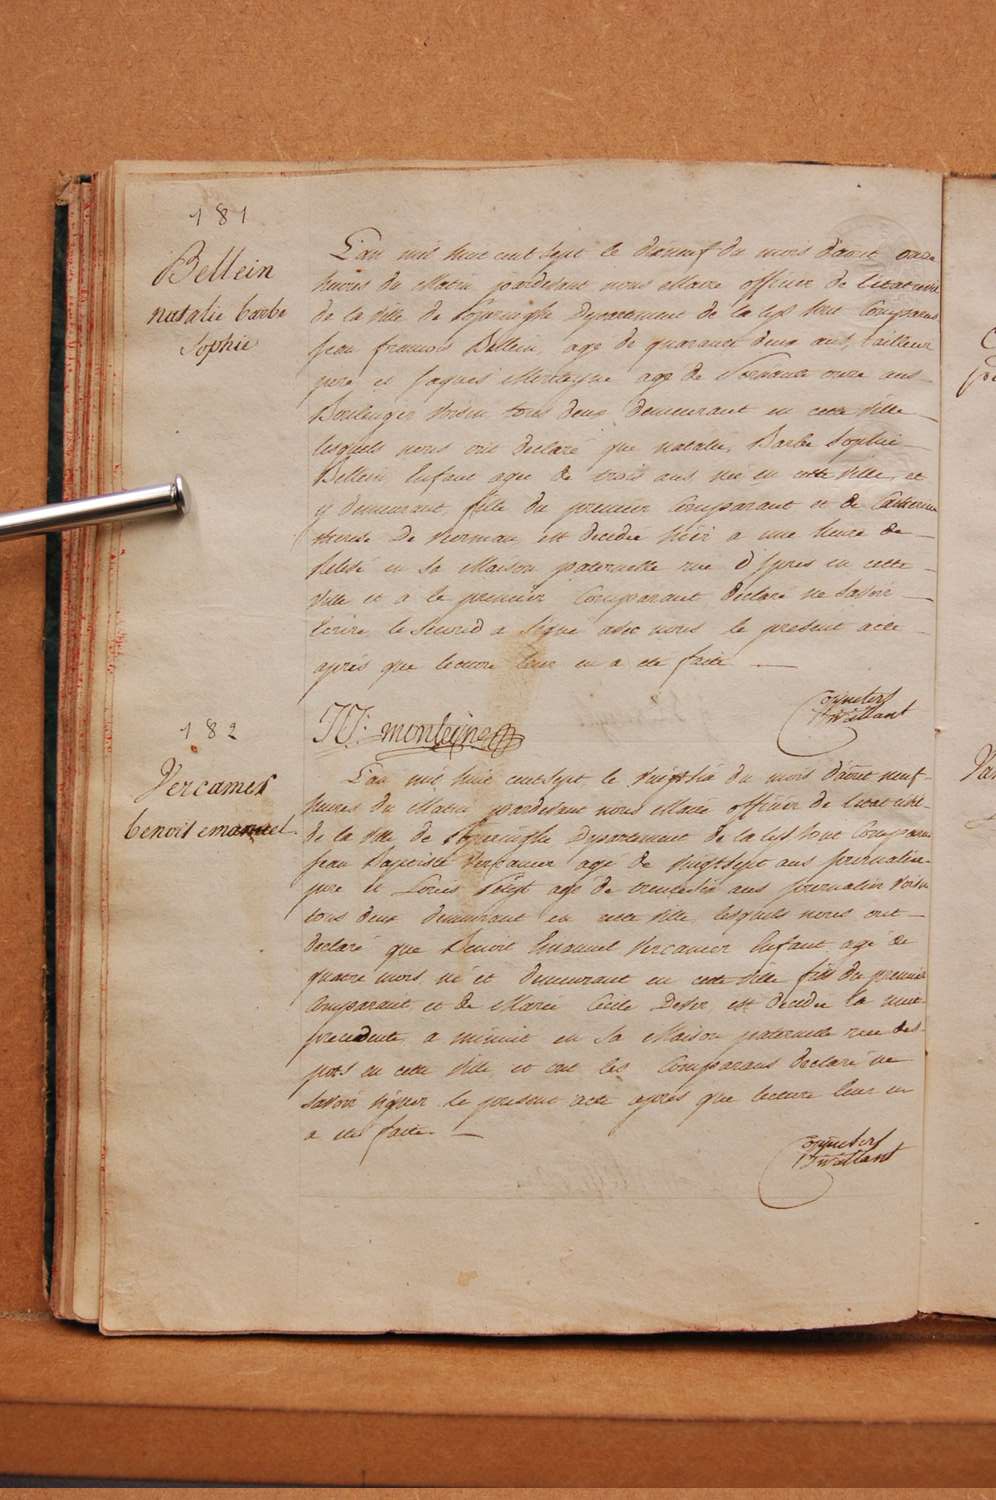 181
Bellein
natalie barbe
Sophie
L'an mil huit cent sept le dixneuf du mois d'aout onze
heures du Matin pardevant nous Maire officier de l'etat civil
de la ville de Poperinghe Departement de la Lys sont Comparus
Jean francois Bellein, agé de quarante deux ans, tailleur
pere et Jaques Monteyne agé de ans
Boulenger Voisin tous deux demeurant en cette Ville
lesquels nous ont declaré que natalie, Barbe Sophie
Bellein Enfant agee de trois ans, née en cette Ville, et
y demeurant, fille du premier Comparant et de Catherine
therese De Norman est decedée hier a une heure de
relevé en sa Maison paternelle rue d'Ipres en cette
Ville et a le premier Comparant declaré ne savoir
Ecrire le second a Signé avec nous le present acte
après que lecture leur en a été faite
monteyne
Vaillant
182
Vercamer
benoit emanuel
L'an mil huit cent sept le vingt six du mois d'aout neuf
heures du Matin pardevant nous Maire officier de l'etat civil
de la Ville de Poperinghe Departement de la Lys sont Comparu
Jean Baptiste Vercamer agé de vingt sept ans journalier
pere et Louis agé de trente six ans journalier Voisin
tous deux demeurant en cette Ville, lesquels nous ont
declaré que Benoit Emanuel Vercamer Enfant agé de
quatre mois né et demeurant en cette Ville fils du premier
Comparant, et de Marie Cecile est decedée la nuit
precedente, a minuit en sa Maison paternelle rue des
pots en cette Ville, et ont les Comparans declaré ne
savoir signer le present acte après que lecture leur en
a été faite
Vaillant